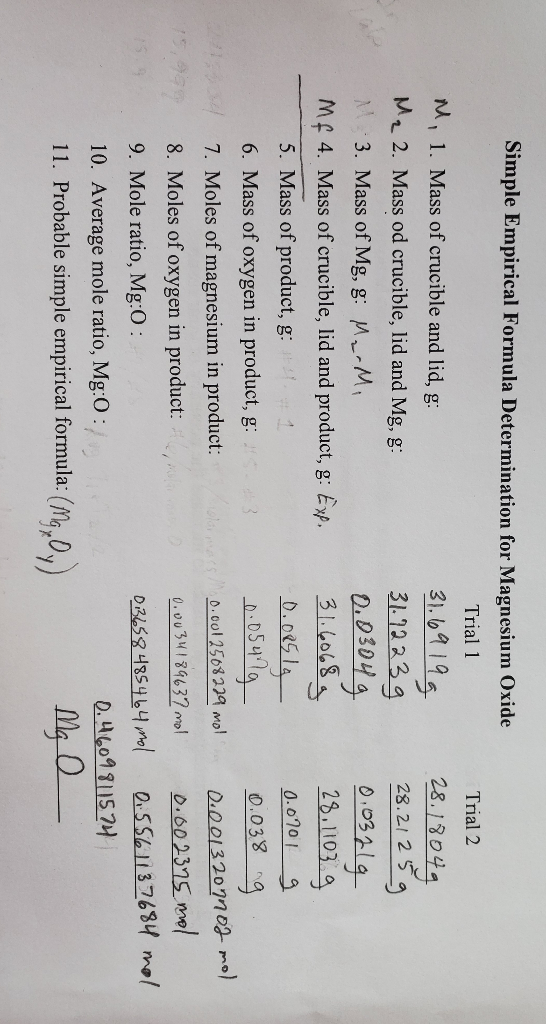 Simple Empirical Formula Determination for Magnesium Oxide
Trial 1 Trial 2
M1 1. Mass of crucible and lid, g: 31.6919g 28.1804g
M2 2. Mass od crucible, lid and Mg, g: 31.7223g 28.2125g
3. Mass of Mg, g: M2-M1 0.0304g 0.0321g
Mf 4. Mass of crucible, lid and product, g: Exp. 31.6068g 28.1103g
5. Mass of product, g: 0.0851g 0.0701 g
6. Mass of oxygen in product, g: 0.0547g 0.038 g
7. Moles of magnesium in product: 0.0012508229 mol 0.0013207702 mol
8. Moles of oxygen in product: 0.0034189637 mol 0.002375 mol
9. Mole ratio, Mg:O : 0.3658485464 mol 0.5561137684 mol
10. Average mole ratio, Mg:O : 0.4609811574
11. Probable simple empirical formula: (MgxOy) MgO